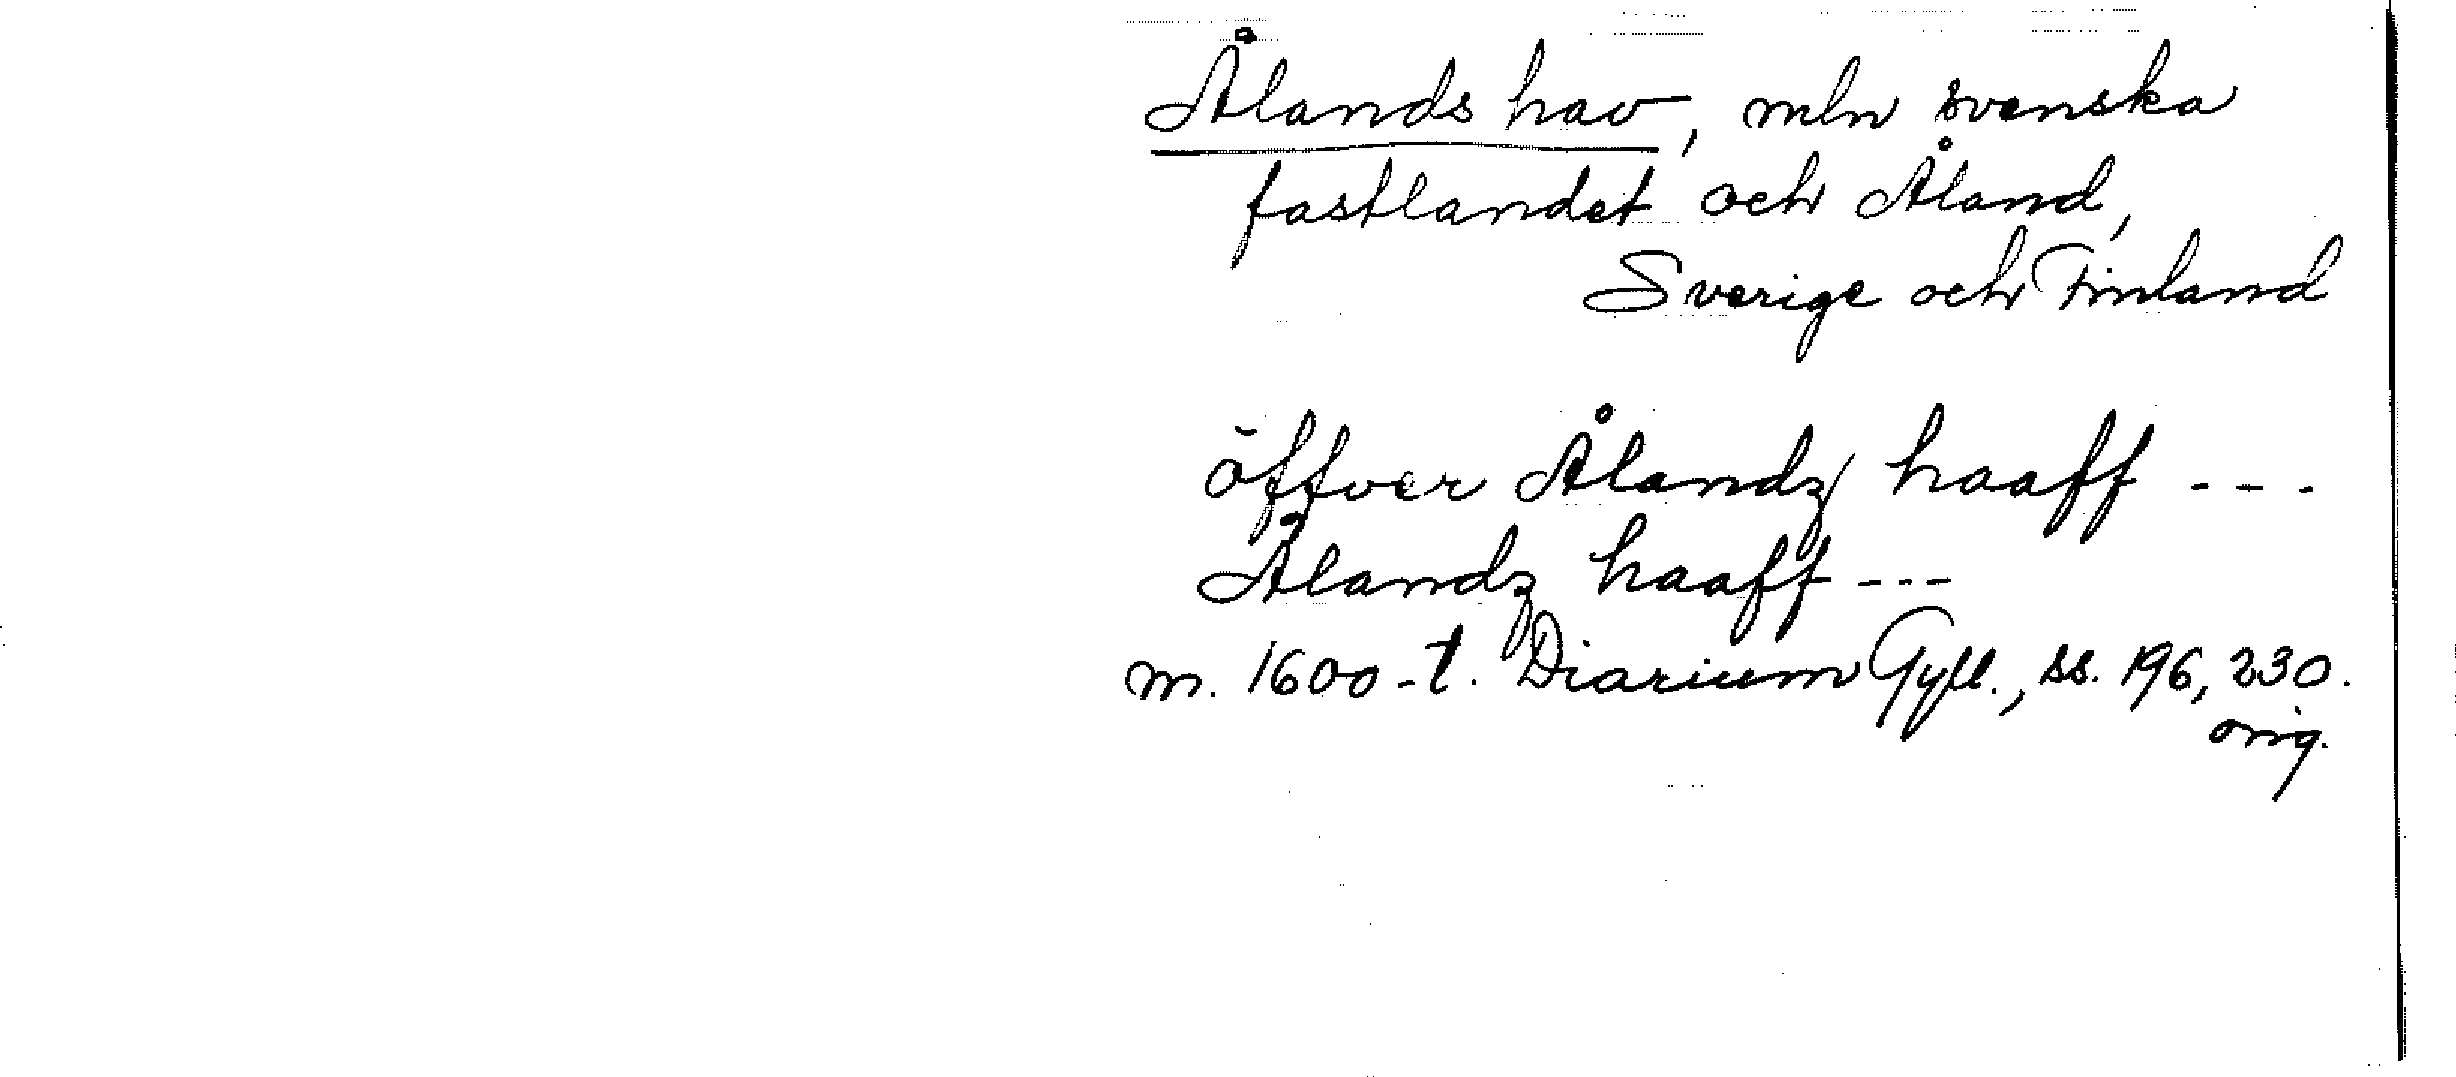 Ålands hav, mln svenska
fastlandet och Åland,
Sverige och Finland
öffver Ålandz haaff ---
Ålandz haaff ---
m. 1600-t. Diarium Gyll., ss. 196, 230.
orig.